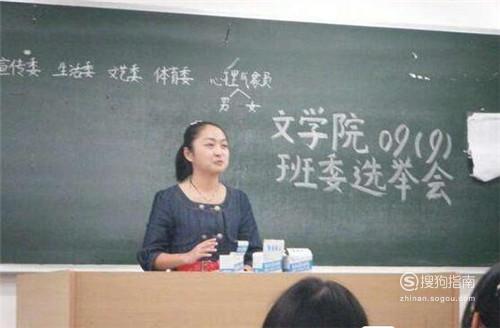 宣传委 生活委 文艺委 体育委 心理气象员
男 女
文学院 09(9)
班委选举会
搜狗指南
zhinan.sogou.com